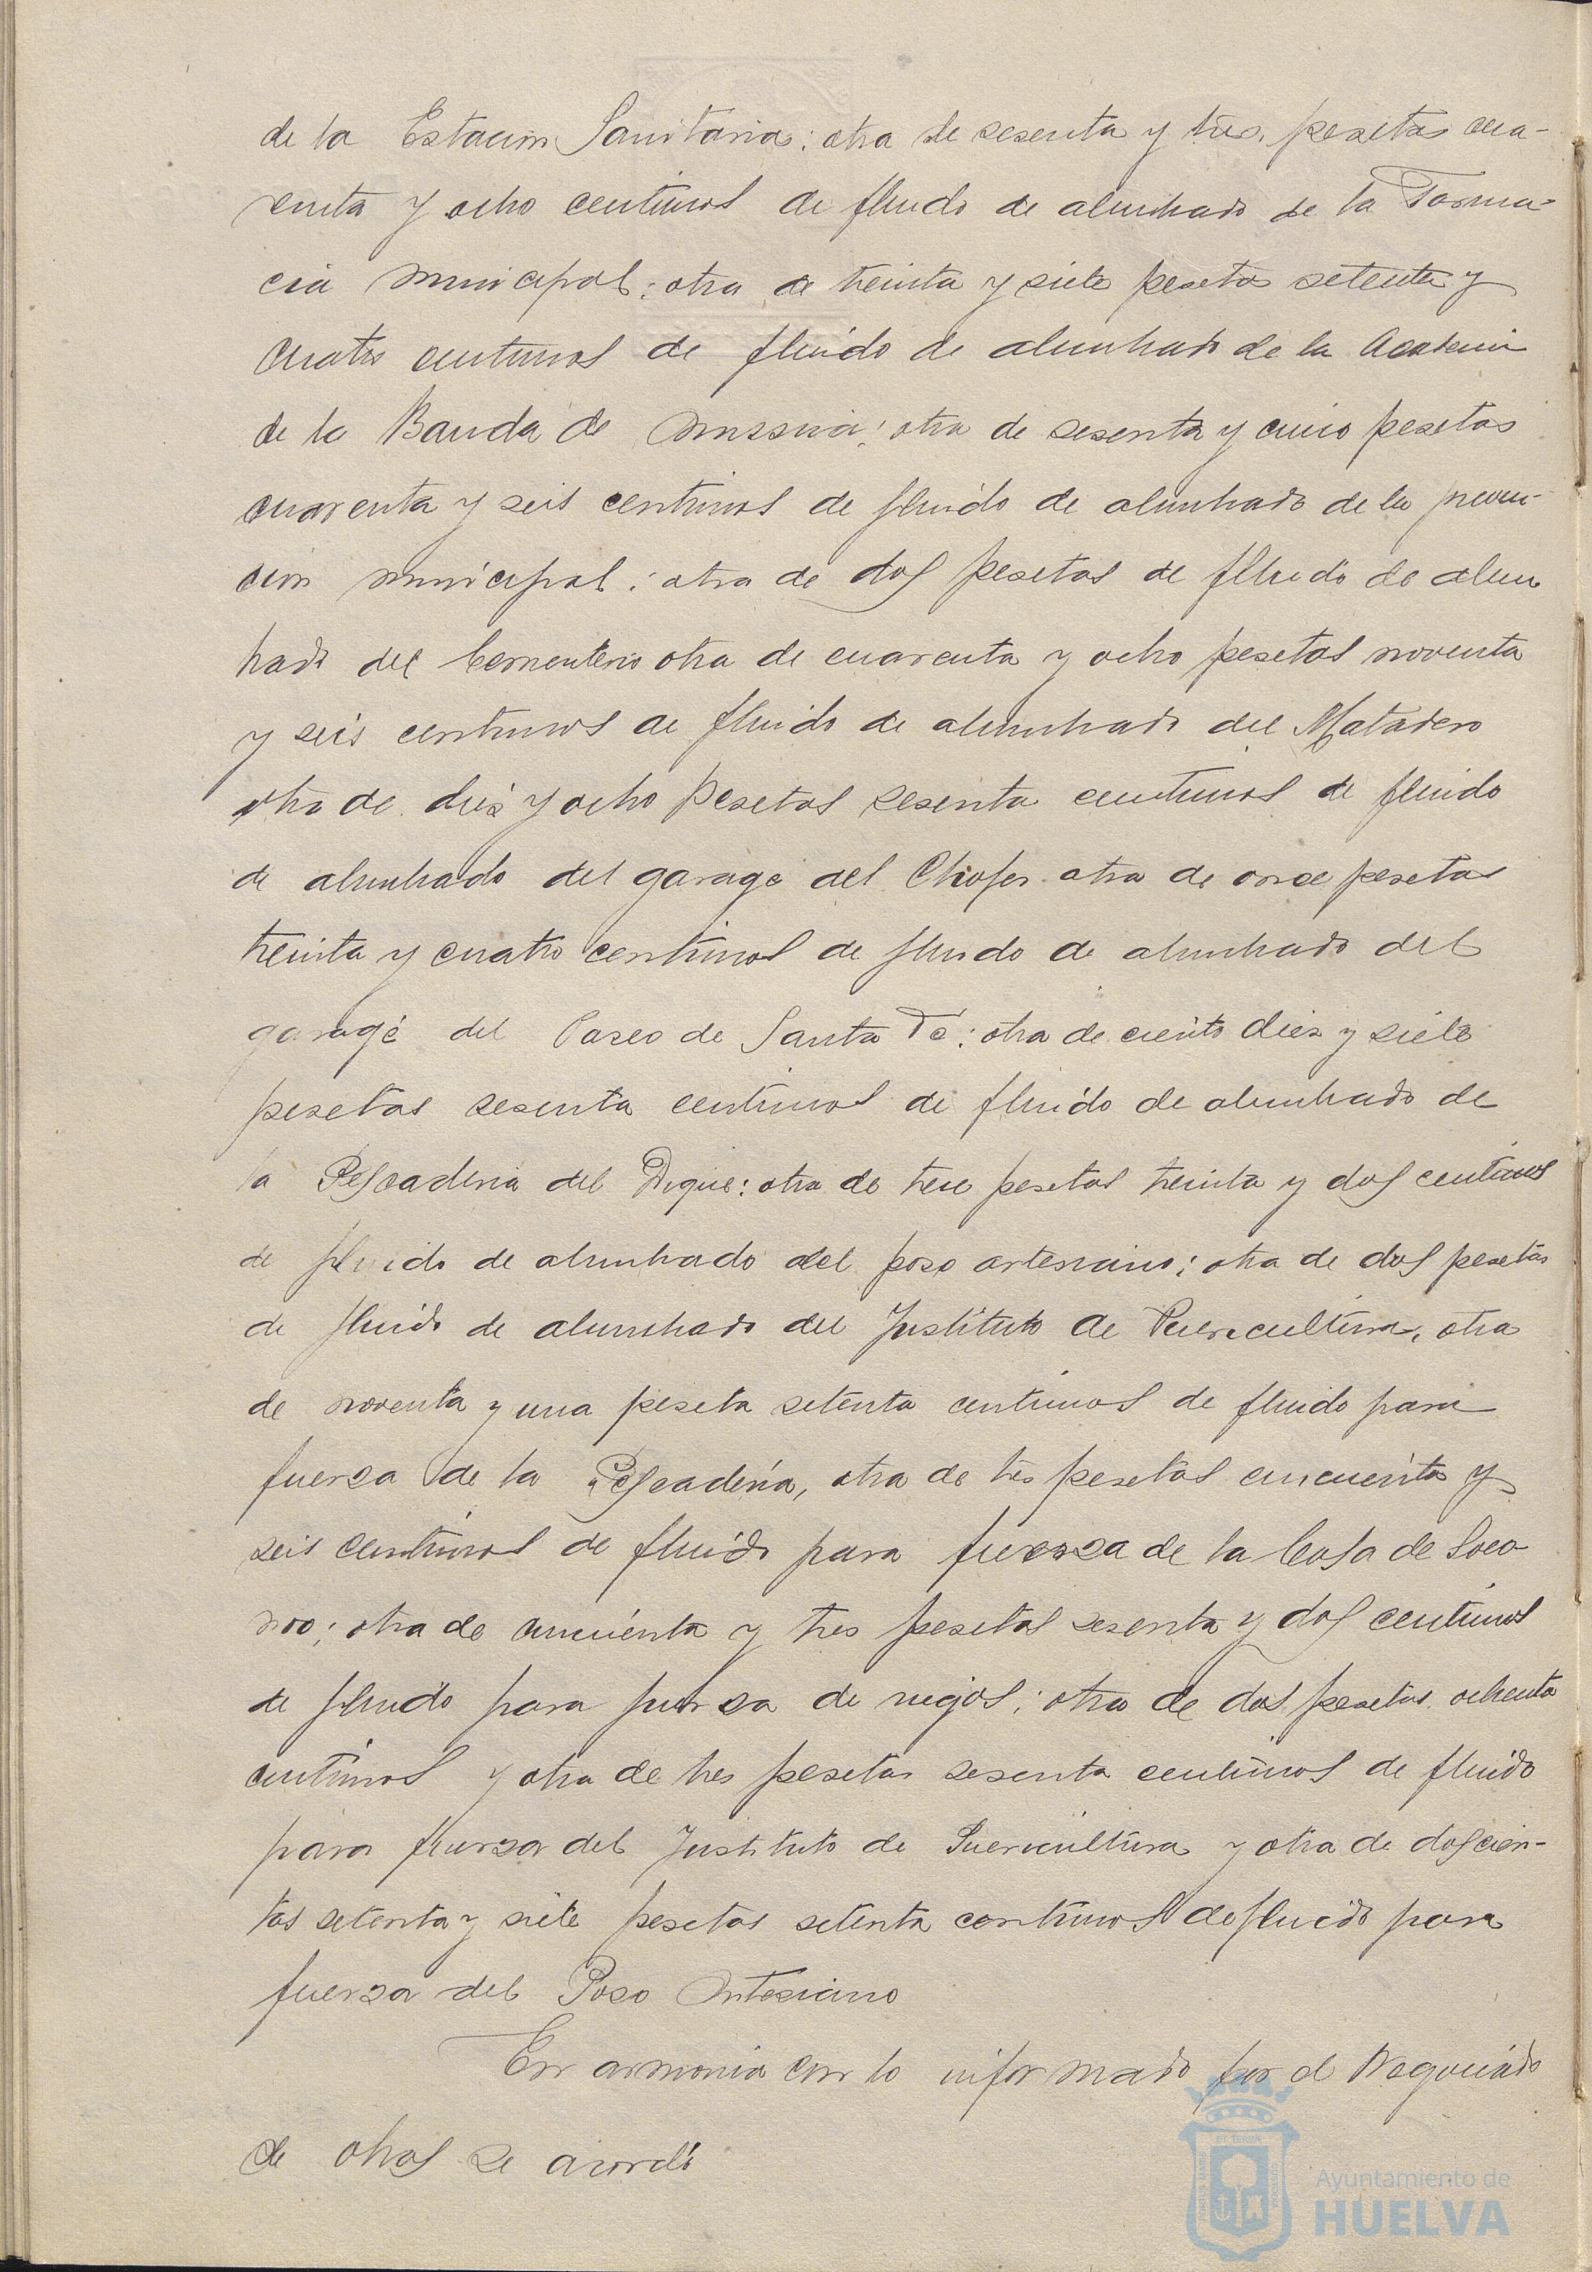 de la Estacion Sanitaria: otra de sesenta y tres pesetas cua-
renta y ocho centimos de fluido de alumbrado de la Farma-
cia municipal: otra de treinta y siete pesetas setenta y
cuatro centimos de fluido de alumbrado de la Academia
de la Banda de Mussica: otra de sesenta y cinco pesetas
cuarenta y seis centimos de fluido de alumbrado de la preven-
cion municipal: otra de dos pesetas de fluido de alum
brado del Cementerio otra de cuarenta y ocho pesetas noventa
y seis centimos de fluido de alumbrado del Matadero
otra de diez y ocho pesetas sesenta centimos de fluido
de alumbrado del garage del Chofer otra de once pesetas
treinta y cuatro centimos de fluido de alumbrado del
garage del Paseo de Santa Fe: otra de ciento diez y siete
pesetas sesenta centimos de fluido de alumbrado de
la Pescaderia del Dique: otra de trece pesetas treinta y dos centimos
de fluido de alumbrado del poso artesiano; otra de dos pesetas
de fluido de alumbrado del Instituto de Puericultura, otra
de noventa y una peseta setenta centimos de fluido para
fuerza de la Pescadería, otra de tres pesetas cincuenta y
seis centimos de fluido para fuerza de la Casa de Soco-
rro; otra de cincuenta y tres pesetas sesenta y dos centimos
de fluido para fuerza de riegos; otra de dos pesetas ochenta
centimos y otra de tres pesetas sesenta centimos de fluido
para fuerza del Instituto de Puericultura y otra de doscien-
tas setenta y siete pesetas setenta centimos de fluido para
fuerza del Poso Artesiano
En armonia con lo informado por el Negociado
de obras se acordó
Ayuntamiento de
HUELVA